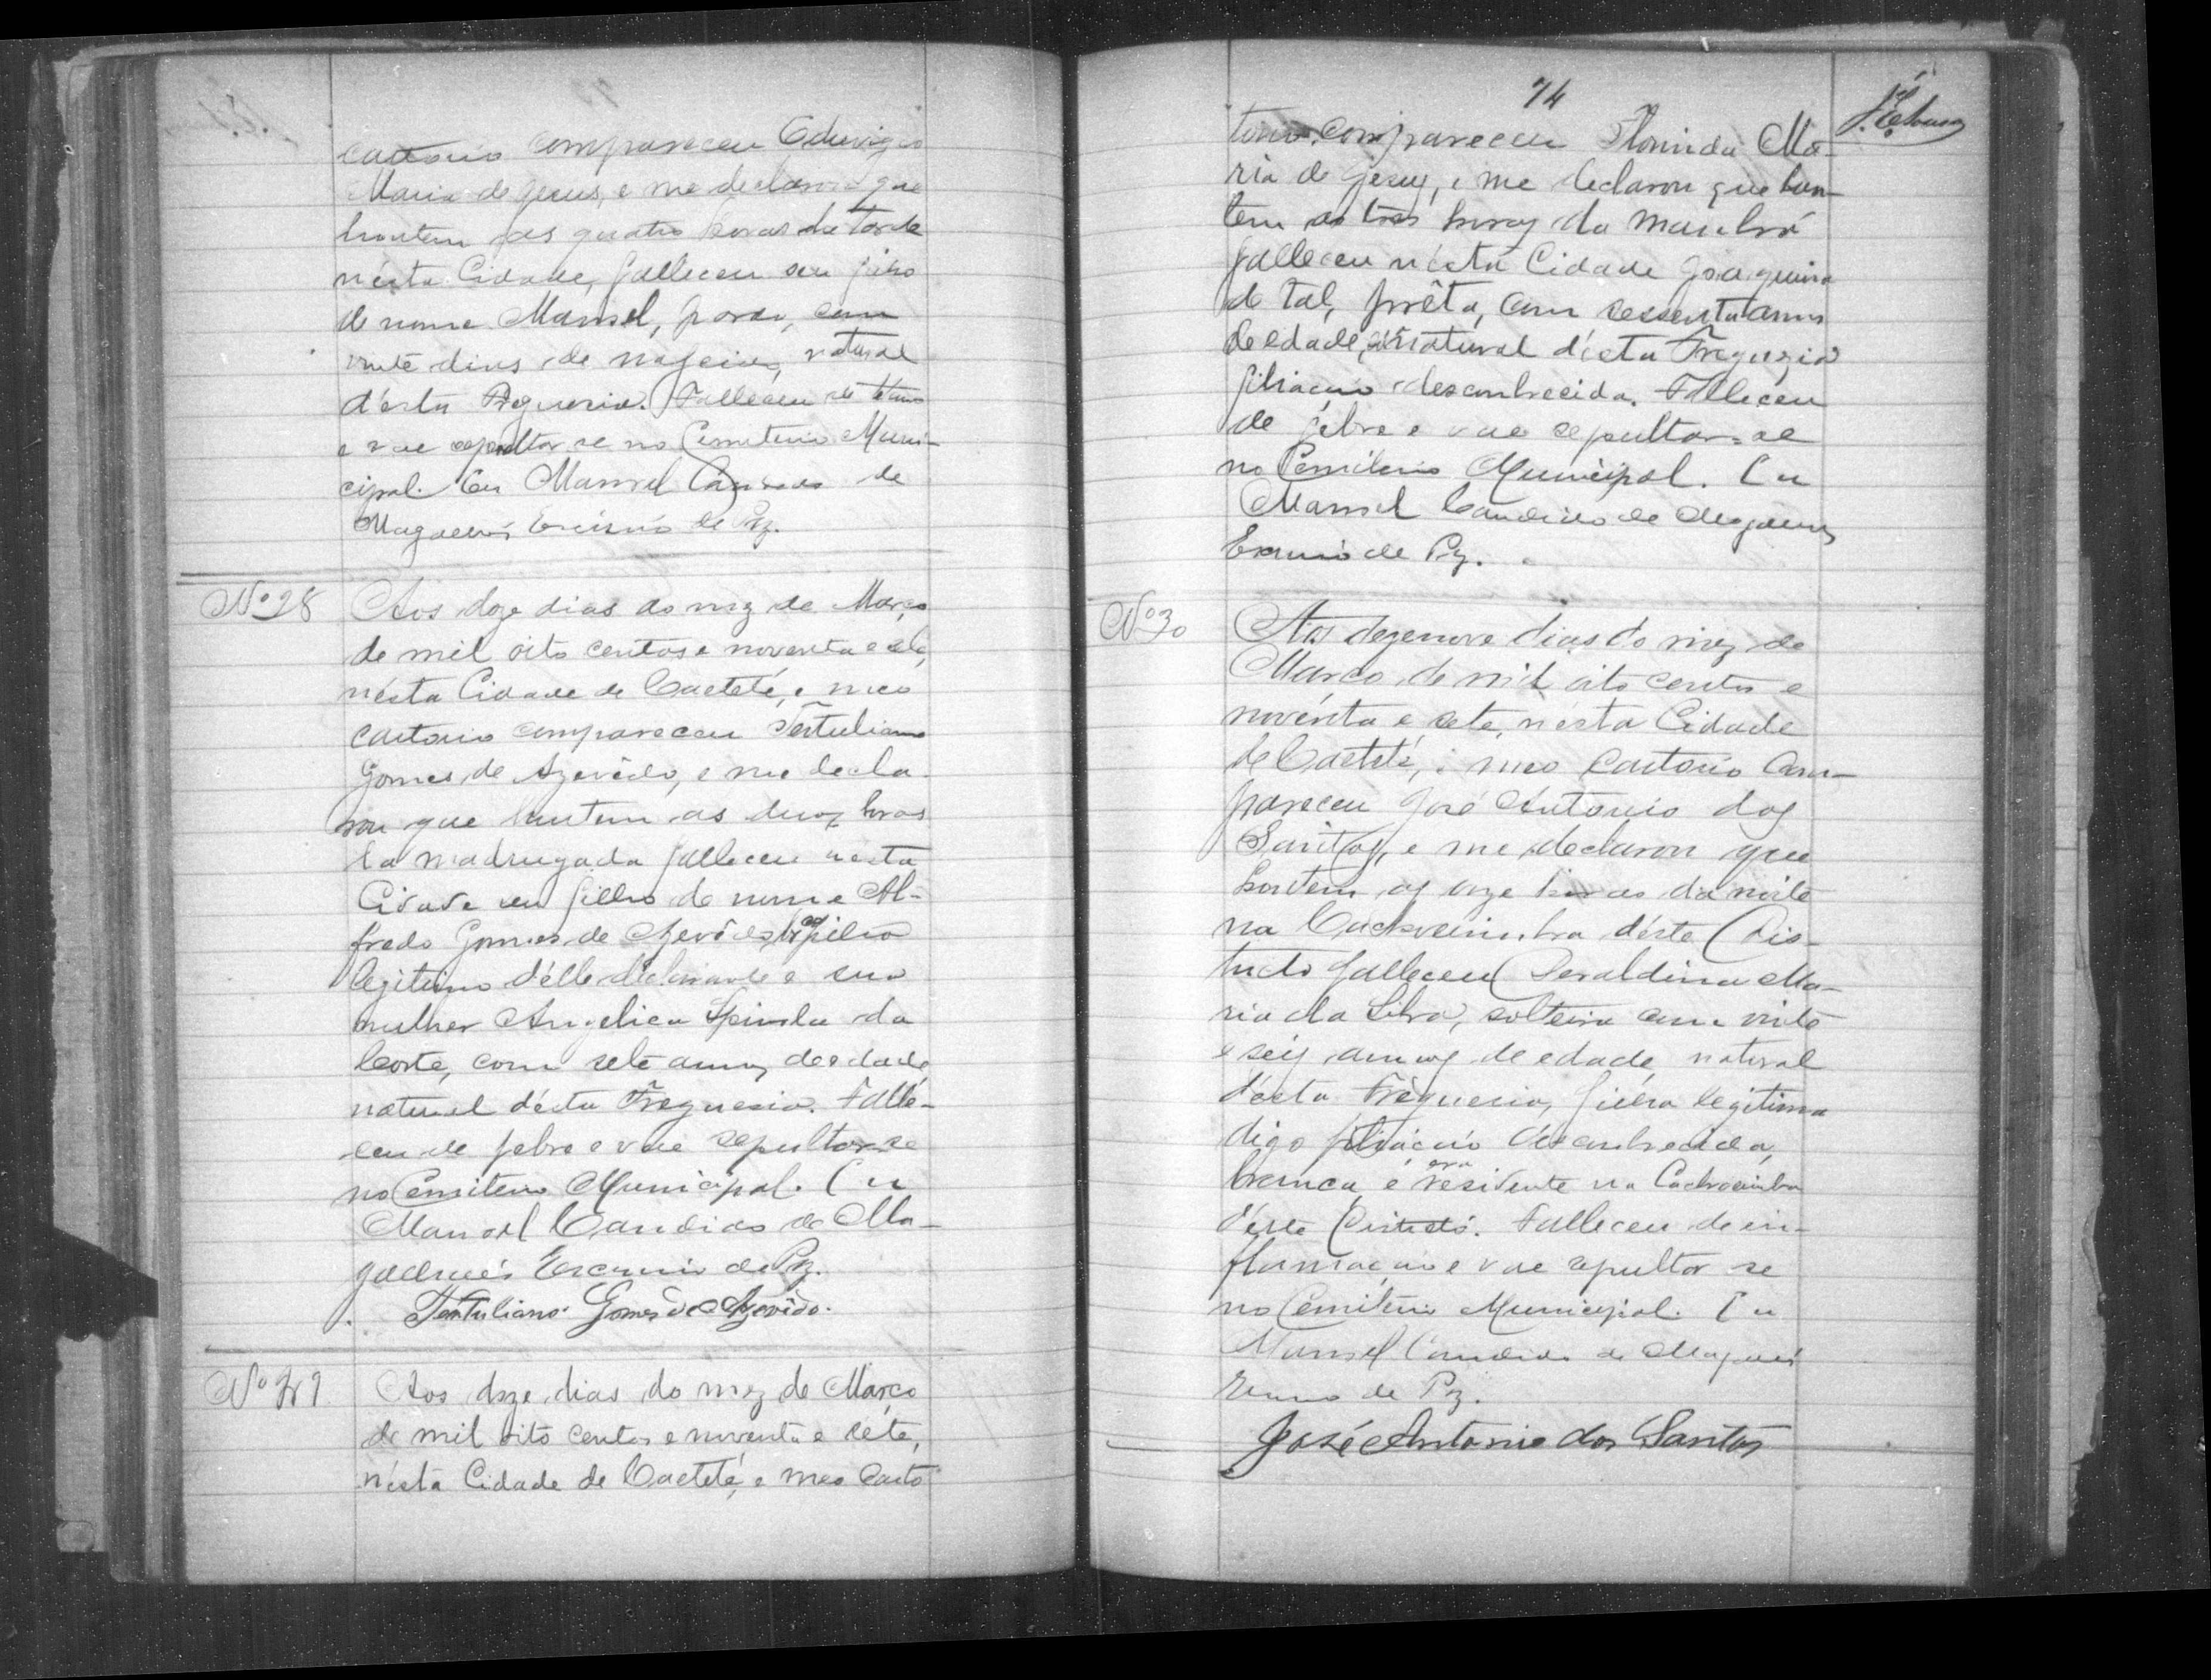 cartorio compareceu Eduvigis
Maria de Jesus, e me declarou que
hontem as quatro horas da tarde
nésta Cidade, falleceu seu filho
de nome Manoel, pardo, com
vinte dias de nascido, natural
d'ésta Freguesia. Falleceu de tetano
e vae sepultar se no Cemiterio Muni-
cipal. Eu Manoel Candido de
Magalhães Escrivão de Pz.
Nº 28
Aos doze dias do mez de Março
de mil oito centos e noventa e sete,
nésta Cidade de Caeteté, e meo
cartorio compareceu Tertuliano
Gomes de Azevêdo, e me decla-
rou que hontem as duas horas
da madrugada falleceu nesta
Cidade seu filho de nome Al-
fredo Gomes de Azevêdo, filho
legitimo d'élle declarante e sua
mulher Angelica Spinola da
Corte, com sete annos de edade
natural désta Freguesia. Falle-
ceu de febre e vae sepultar-se
no Cemiterio Municipal. Eu
Manoel Candido de Ma-
galhães Escrivão de Pz.
Tertuliano Gomes de Azevêdo.
Nº 29
Aos doze dias do mez de Março
de mil oito centos e noventa e séte,
nésta Cidade de Caeteté, e meo Carto
74
torio compareceu Florinda Ma-
ria de Jesus, e me declarou que hon-
tem as tres horas da manhã
falleceu nésta Cidade Joaquina
de tal, prêta, com sessenta annos
de edade, natural désta Freguezia
filiação desconhecida. Falleceu
de febre e vae sepultar-se
no Cemiterio Municipal. Eu
Manoel Candido de Magalhães
Escrivão de Pz.
Nº 30
Aos dezenove dias do mez de
Março de mil oito centos e
novénta e sete, nésta Cidade
de Caeteté, e meo Cartorio Com-
pareceu José Antonio dos
Santos, e me declarou que
hontem as onze horas da noite
na Cachoeirinha déste Dis-
tricto falleceu Geraldina Ma-
ria da Silva, solteira com vinte
e seis annos de edade, natural
d'ésta Freguesia, filha legitima
digo filiação desconhecida,
branca, e era residente na Cachoeirinha
d'éste Districto. Falleceu de in-
flamação e vae sepultar se
no Cemiterio Municipal. Eu
Manoel Candido de Magalhães
Escrivão de Pz.
José Antonio dos Santos